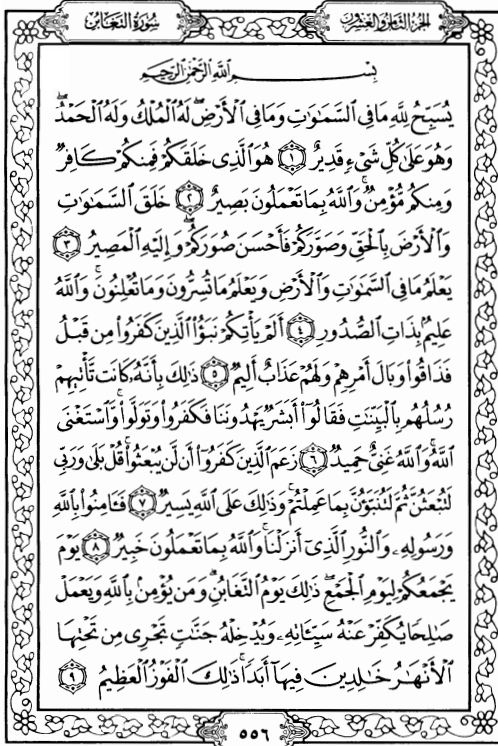 سُورَةُ التَّغَابُنِ
الجُزْءُ الثَّامِنُ وَالعِشْرُونَ
بِسْمِ ٱللَّهِ ٱلرَّحْمَٰنِ ٱلرَّحِيمِ
يُسَبِّحُ لِلَّهِ مَا فِي ٱلسَّمَٰوَٰتِ وَمَا فِي ٱلْأَرْضِۖ لَهُ ٱلْمُلْكُ وَلَهُ ٱلْحَمْدُۖ
وَهُوَ عَلَىٰ كُلِّ شَيْءٍ قَدِيرٌ ١ هُوَ ٱلَّذِي خَلَقَكُمْ فَمِنكُمْ كَافِرٌ
وَمِنكُم مُّؤْمِنٌۚ وَٱللَّهُ بِمَا تَعْمَلُونَ بَصِيرٌ ٢ خَلَقَ ٱلسَّمَٰوَٰتِ
وَٱلْأَرْضَ بِٱلْحَقِّ وَصَوَّرَكُمْ فَأَحْسَنَ صُوَرَكُمْۖ وَإِلَيْهِ ٱلْمَصِيرُ ٣
يَعْلَمُ مَا فِي ٱلسَّمَٰوَٰتِ وَٱلْأَرْضِ وَيَعْلَمُ مَا تُسِرُّونَ وَمَا تُعْلِنُونَۚ وَٱللَّهُ
عَلِيمٌۢ بِذَاتِ ٱلصُّدُورِ ٤ أَلَمْ يَأْتِكُمْ نَبَؤُا۟ ٱلَّذِينَ كَفَرُوا۟ مِن قَبْلُ
فَذَاقُوا۟ وَبَالَ أَمْرِهِمْ وَلَهُمْ عَذَابٌ أَلِيمٌ ٥ ذَٰلِكَ بِأَنَّهُۥ كَانَت تَّأْتِيهِمْ
رُسُلُهُم بِٱلْبَيِّنَٰتِ فَقَالُوٓا۟ أَبَشَرٌ يَهْدُونَنَا فَكَفَرُوا۟ وَتَوَلَّوا۟ۚ وَّٱسْتَغْنَى
ٱللَّهُۚ وَٱللَّهُ غَنِيٌّ حَمِيدٌ ٦ زَعَمَ ٱلَّذِينَ كَفَرُوٓا۟ أَن لَّن يُبْعَثُوا۟ۚ قُلْ بَلَىٰ وَرَبِّي
لَتُبْعَثُنَّ ثُمَّ لَتُنَبَّؤُنَّ بِمَا عَمِلْتُمْۚ وَذَٰلِكَ عَلَى ٱللَّهِ يَسِيرٌ ٧ فَـَٔامِنُوا۟ بِٱللَّهِ
وَرَسُولِهِۦ وَٱلنُّورِ ٱلَّذِيٓ أَنزَلْنَاۚ وَٱللَّهُ بِمَا تَعْمَلُونَ خَبِيرٌ ٨ يَوْمَ
يَجْمَعُكُمْ لِيَوْمِ ٱلْجَمْعِۖ ذَٰلِكَ يَوْمُ ٱلتَّغَابُنِۗ وَمَن يُؤْمِنۢ بِٱللَّهِ وَيَعْمَلْ
صَٰلِحًا يُكَفِّرْ عَنْهُ سَيِّـَٔاتِهِۦ وَيُدْخِلْهُ جَنَّٰتٍ تَجْرِي مِن تَحْتِهَا
ٱلْأَنْهَٰرُ خَٰلِدِينَ فِيهَآ أَبَدًاۚ ذَٰلِكَ ٱلْفَوْزُ ٱلْعَظِيمُ ٩
٥٥٦